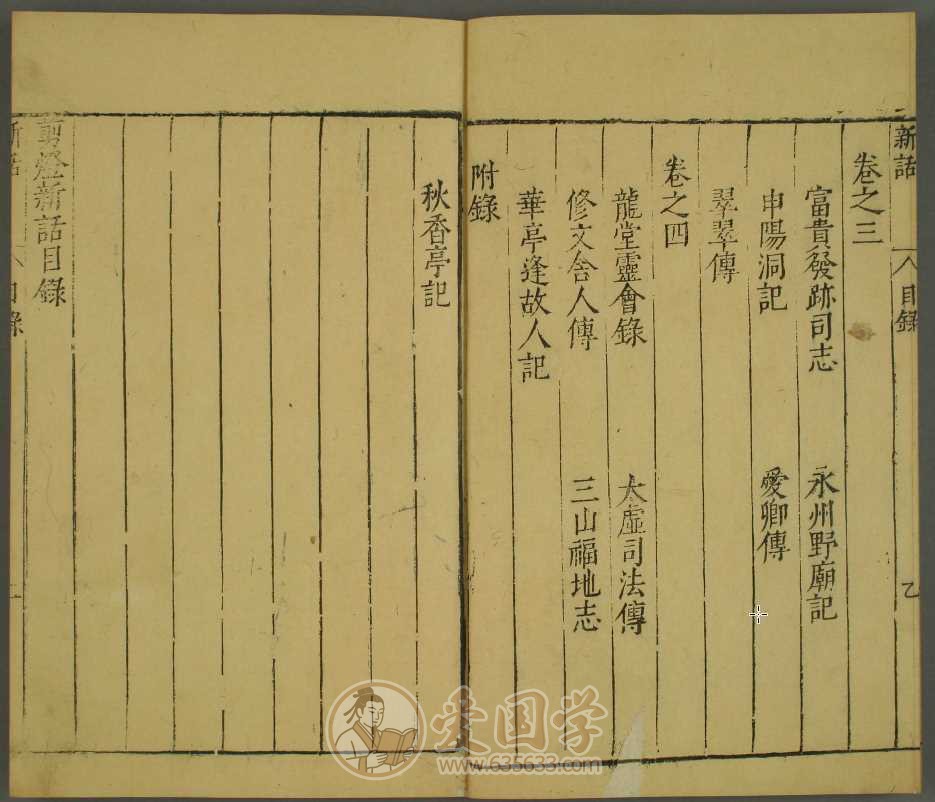 新話 目錄 乙
卷之三
富貴發跡司志 永州野廟記
申陽洞記 愛卿傳
翠翠傳
卷之四
龍堂靈會錄 太虛司法傳
修文舍人傳 三山福地志
華亭逢故人記
附錄
秋香亭記
剪燈新話目錄
新話 目錄
愛国学
www.635633.com